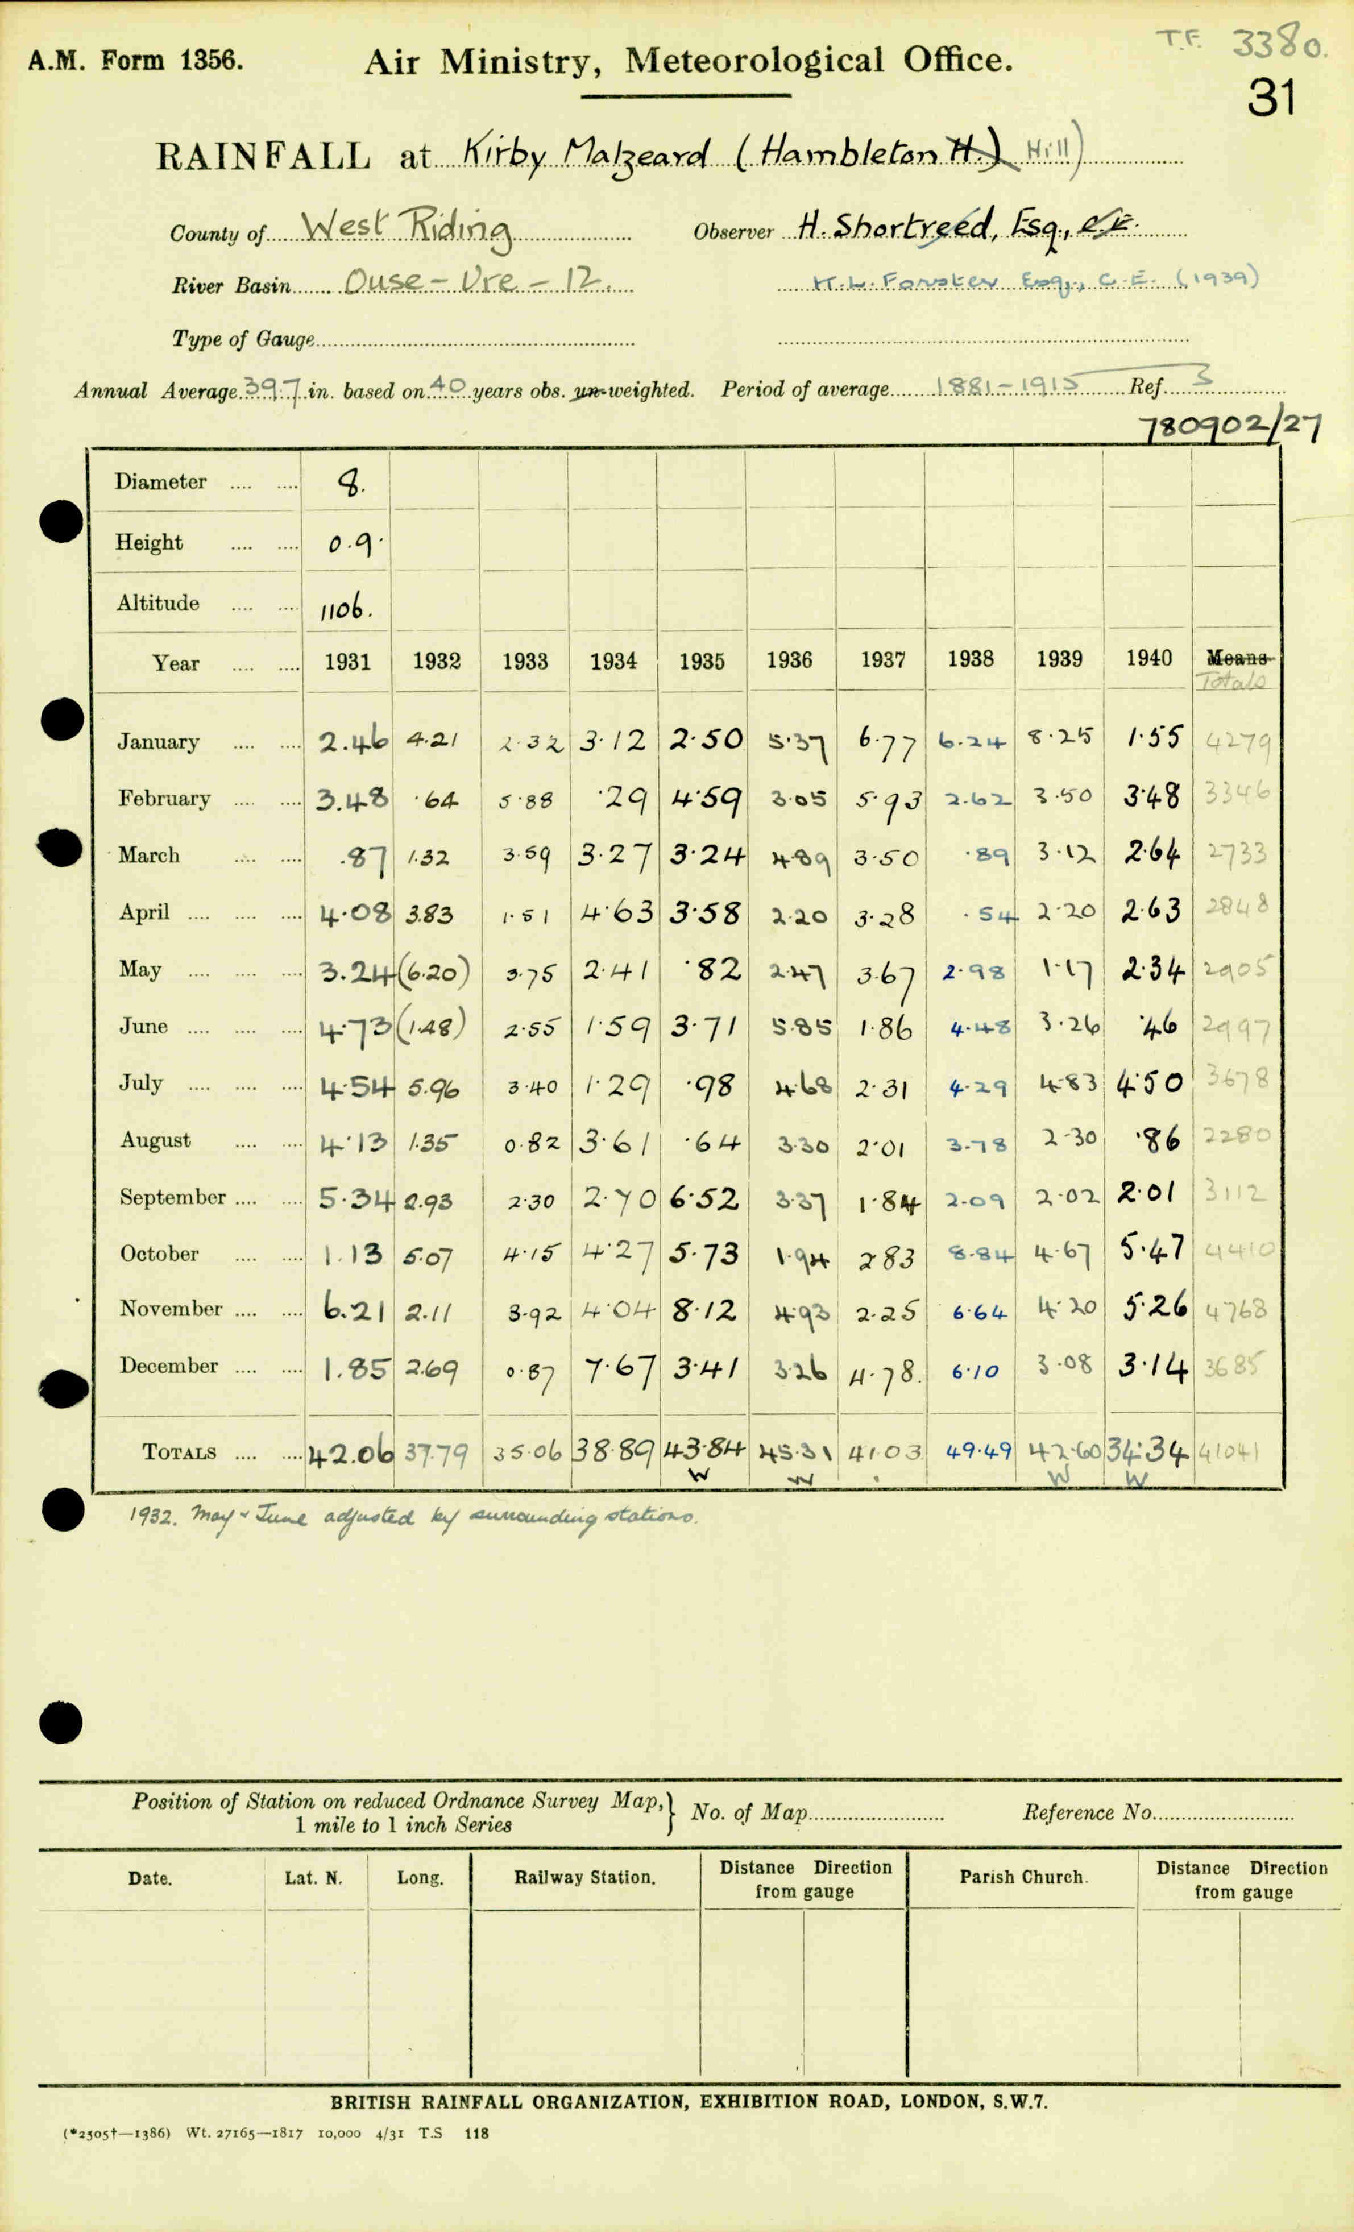 T.F. 3380.
A.M. Form 1356. Air Ministry, Meteorological Office.
31
RAINFALL at Kirby Malzeard (Hambleton H.) Hill)
County of West Riding Observer H. Shortreed, Esq., C.E.
River Basin Ouse - Ure - 12. H.L. Forster Esq., C.E. (1939)
Type of Gauge
Annual Average 39.7 in. based on 40 years obs. un-weighted. Period of average 1881-1915 Ref. 3
780902/27
Diameter 8.
Height 0.9.
Altitude 1106.
Year 1931 1932 1933 1934 1935 1936 1937 1938 1939 1940 Means
Totals
January 2.46 4.21 2.32 3.12 2.50 5.37 6.77 6.24 8.25 1.55 4279
February 3.48 .64 5.88 .29 4.59 3.05 5.93 2.62 3.50 3.48 3346
March .87 1.32 3.59 3.27 3.24 4.89 3.50 .89 3.12 2.64 2733
April 4.08 3.83 1.51 4.63 3.58 2.20 3.28 .54 2.20 2.63 2848
May 3.24 (6.20) 3.75 2.41 .82 2.47 3.67 2.98 1.17 2.34 2905
June 4.73 (1.48) 2.55 1.59 3.71 5.85 1.86 4.48 3.26 .46 2997
July 4.54 5.96 3.40 1.29 .98 4.68 2.31 4.29 4.83 4.50 3678
August 4.13 1.35 0.82 3.61 .64 3.30 2.01 3.78 2.30 .86 2280
September 5.34 2.93 2.30 2.70 6.52 3.37 1.84 2.09 2.02 2.01 3112
October 1.13 5.07 4.15 4.27 5.73 1.94 2.83 8.84 4.67 5.47 4410
November 6.21 2.11 3.92 4.04 8.12 4.93 2.25 6.64 4.20 5.26 4768
December 1.85 2.69 0.87 7.67 3.41 3.26 4.78. 6.10 3.08 3.14 3685
TOTALS 42.06 37.79 35.06 38.89 43.84 45.31 41.03 49.49 42.60 34.34 41041
W W W W
1932. May & June adjusted by surrounding stations.
Position of Station on reduced Ordnance Survey Map, } No. of Map Reference No.
1 mile to 1 inch Series
Date. Lat. N. Long. Railway Station. Distance Direction from gauge Parish Church. Distance Direction from gauge
BRITISH RAINFALL ORGANIZATION, EXHIBITION ROAD, LONDON, S.W.7.
(*2505†—1386) Wt. 27165—1817 10,000 4/31 T.S 118